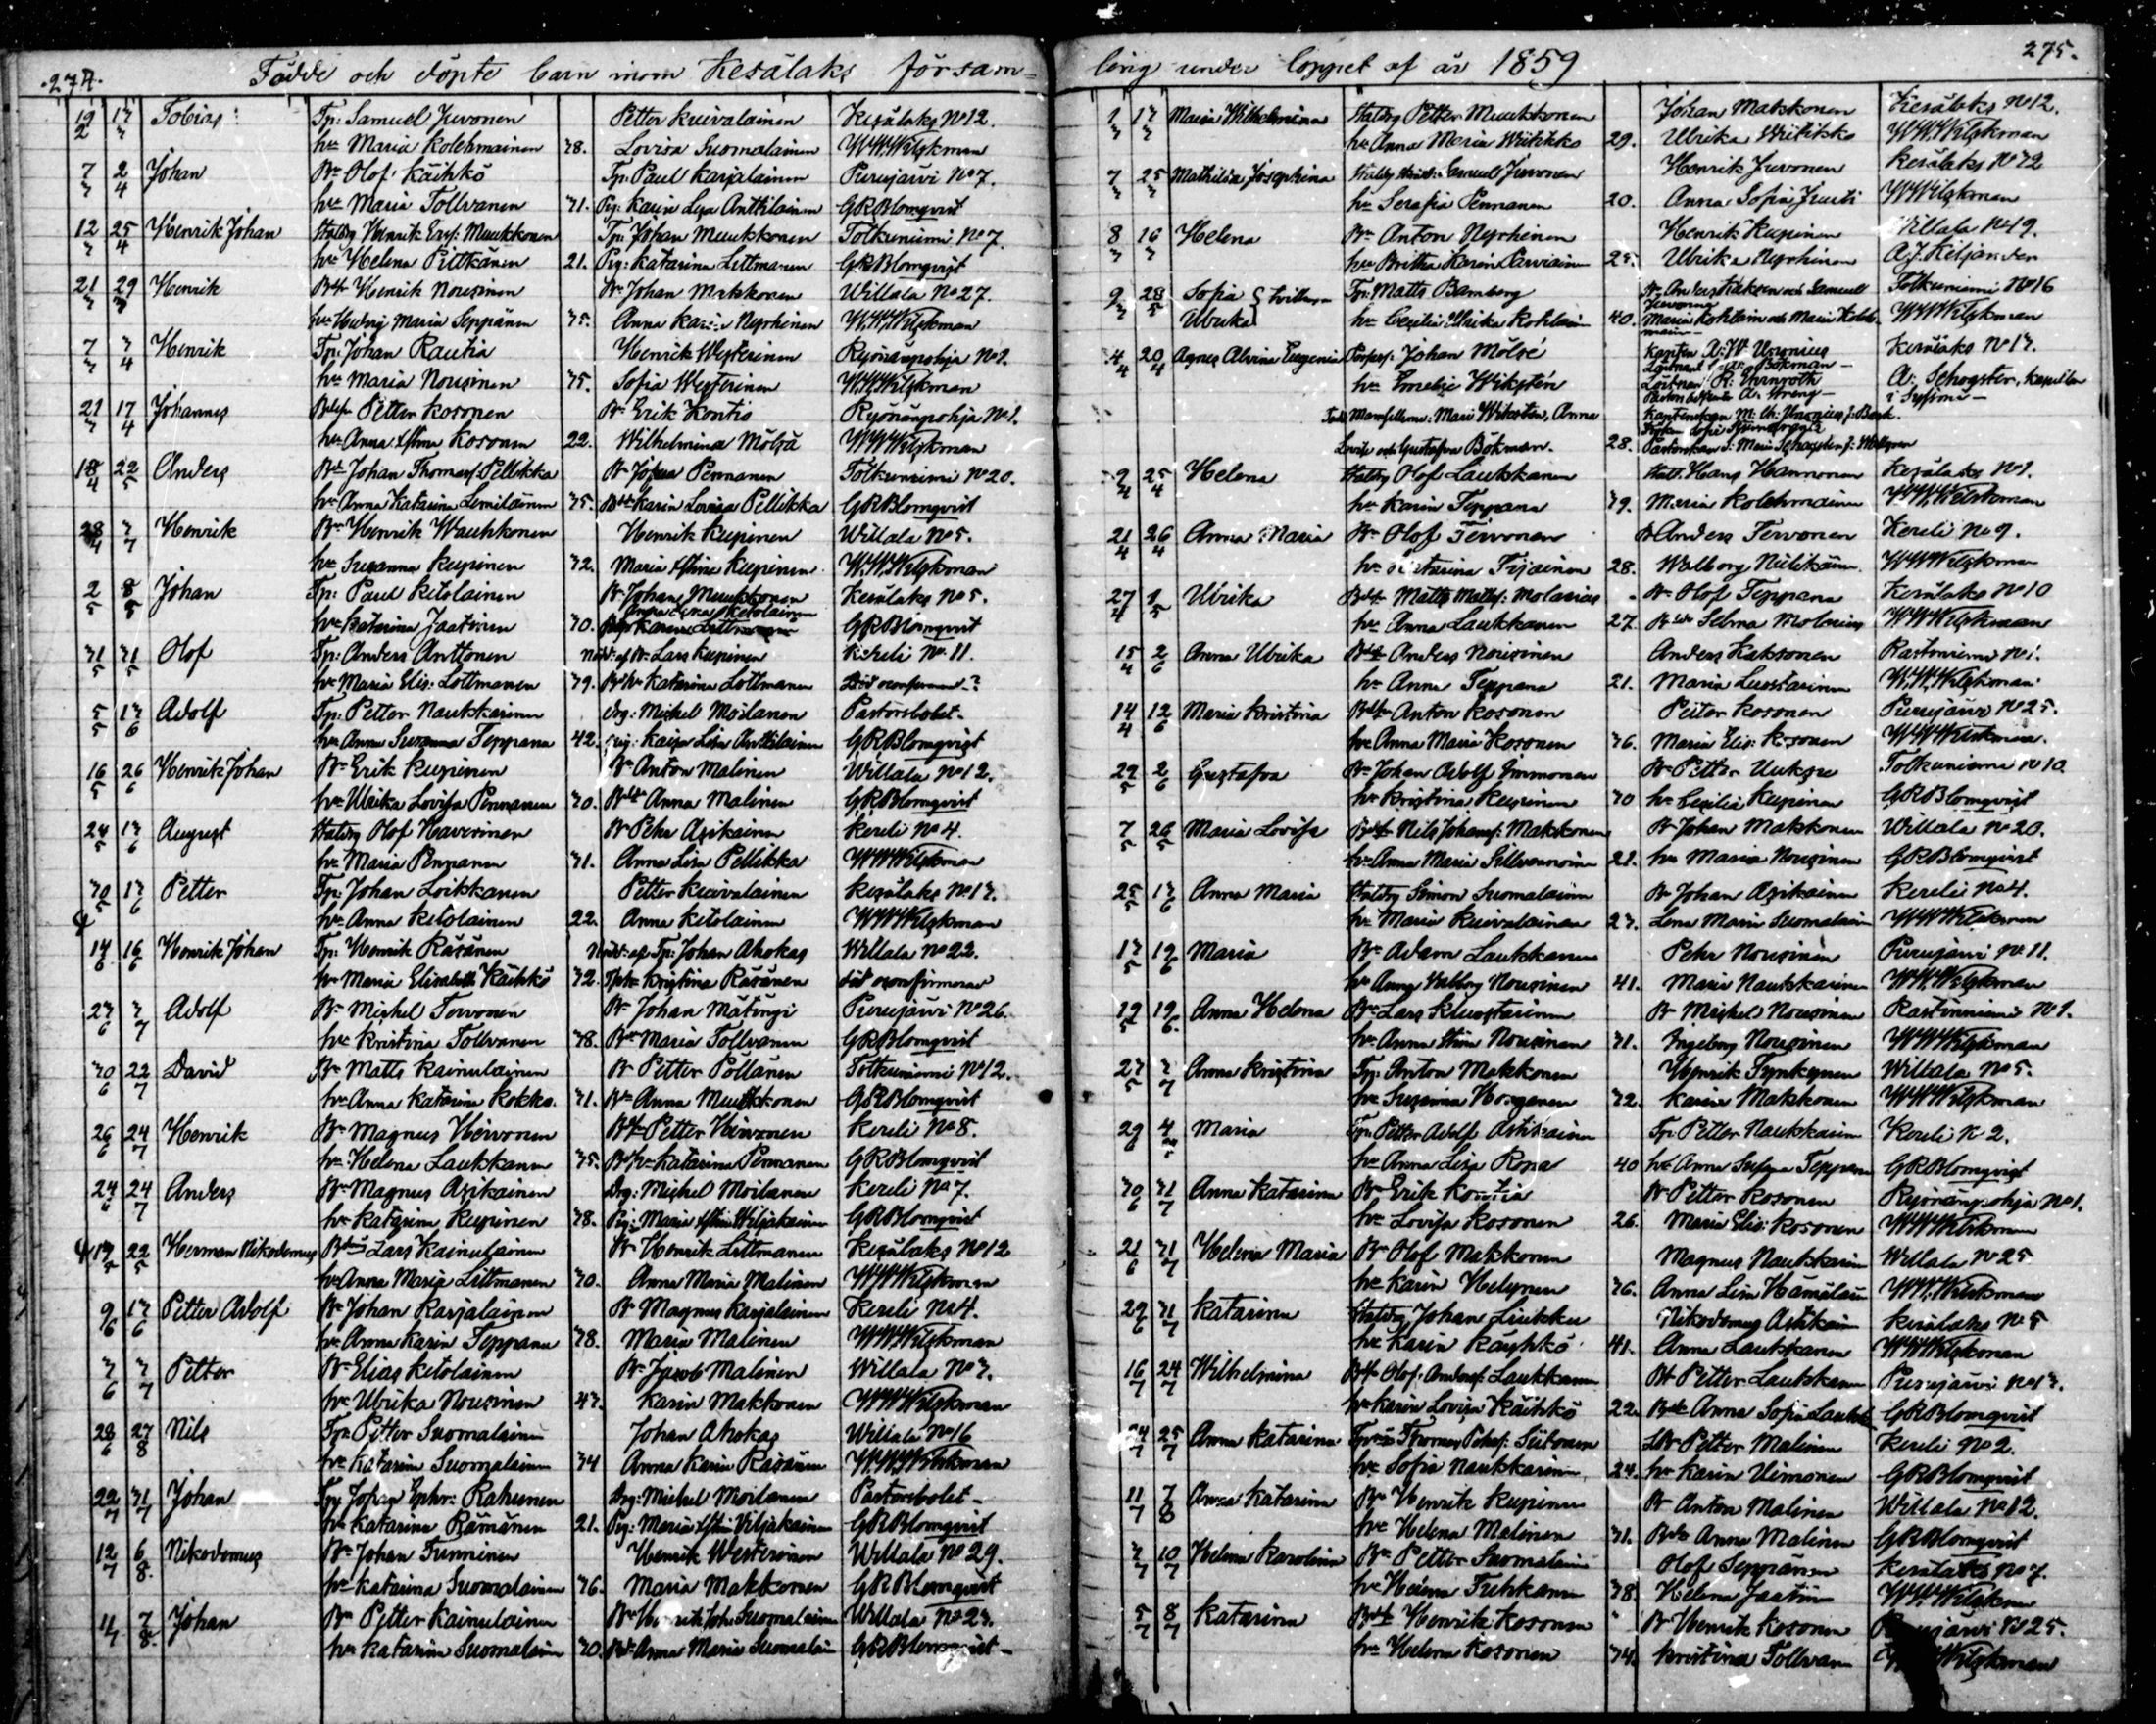 274.
Födde och döpte barn inom Kesälaks försam=
19/2 13/3 Tobias Tp: Samuel Juvonen Petter Kuivalainen Kesälaks No 12.
hu Maria Kolehmainen 38. Lovisa Suomalainen WWWilskman
7/3 2/4 Johan Bn Olof Käihkö Tp: Paul Karjalainen Purujärvi No 7.
hu Maria Tollvanen 31. Pig: Karin Lisa Anttilainen GRBlomqvist
12/3 25/4 Henrik Johan Staldrg Henrik Muukkonen Tp: Johan Muukkonen Totkuniemi No 7.
hu Helena Pittkänen 21. Pig: Katarina Littmanen GRBlomqvist
21/3 29 Henrik Henrik Nousinen Bn Johan Makkonen Willala No 27.
hu Hedvig Maria Seppänen 35. Anna Nyrhinen WWWilskman
7/3 3/4 Henrik Tp: Johan Rautia Henrik Westerinen Ryönänpohja No 2.
hu Maria Nousinen 35. Sofia Westerinen WWWilskman
21/3 17/4 Johannes Petter Kosonen Bn Erik Kontio Ryönänpohja No 1.
hu Anna Kosonen 22. Wilhelmina Mölsä WWWilskman
18/4 22/5 Anders Johan Thomasf Pellikka Pennanen Totkuniemi No 20.
hu Anna Katarina 35. Karin Lovisa Pellikka GRBlomqvist
28/4 3/7 Henrik Bn Henrik Wauhkonen Henrik Kupinen Willala No 5.
hu Susanna Kupinen 32. Maria Kupinen WWWilskman
2/5 8/5 Johan Tp: Paul Kitolainen Bn Johan Muukkonen Kesälaks No 5.
hu Katarina Jaatinen 30. GRBlomqvist
31/5 31/5 Olof Tp: Anders Anttonen Lars Kupinen Kereli No 11.
hu Maria Elis: Lottmanen 39. Katarina Lottmanen
5/5 13/6 Adolf Tp: Petter Naukkarinen Drg: Mickel Moilanen Pastorsbolet.
hu Anna Susanna Teppana 42. Pig: Kaisa Lisa Anttilainen GRBlomqvist
16/5 26/6 Henrik Johan Bn Erik Kupinen Bn Anton Malinen Willala No 12.
hu Ulrika Lovisa Pennanen 30. Anna Malinen GRBlomqvist
24/5 13/6 August Staldrg Olof Haverinen Bn Pehr Asikainen Kereli No 4.
hu Maria Pennanen 31. Anna Lisa Pellikka WWWilskman
30/5 13/6 Petter Tp: Johan Loikkanen Petter Kuivalainen Kesälaks No 13.
hu Anna Kitolainen 22. Anna Kitolainen WWWilskman
16/6 Henrik Johan Tp: Henrik Räsänen Tp: Johan Ahokas Willala No 22.
hu Maria Elisabeth Käihkö 32. Kristina Räsänen
23/6 3/7 Adolf Bn Mickel Torvonen Bn Johan Mätingi Purujärvi No 26.
hu Kristina Tollvanen 38. Maria Tollvanen GRBlomqvist
30/6 22/7 David Bn Matts Kainulainen Bn Petter Pöllänen Totkuniemi No 12.
hu Anna Katarina Kokko. 31. Anna Muukkonen GRBlomqvist
26/6 24/7 Henrik Bn Magnus Hirvonen Petter Hirvonen Kereli No 8.
hu Helena Laukkanen 35. Katarina Pennanen GRBlomqvist
24/6 24/7 Anders Bn Magnus Asikainen Drg: Mickel Moilanen Kereli No 7.
hu Katarina Kupinen 38. Pig: Maria Wiljakainen GRBlomqvist
22/5 Herman Nikodemus Lars Kainulainen Bn Henrik Littmanen Kesälaks No 12
hu Anna Maria Littmanen 30. Anna Maria Malinen WWWilskman
9/6 13/6 Petter Adolf Bn Johan Karjalainen Bn Magnus Karjalainen Kereli No 4.
hu Anna Karin Teppana 38. Maria Malinen WWWilskman
3/6 3/7 Petter Bn Elias Kitolainen Bn Jacob Malinen Willala No 3.
hu Ulrika Nousinen 43. Karin Makkonen WWWilskman
28/6 27/8 Nils Tp: Petter Suomalainen Johan Ahokas Willala No 16
hu Katarina Suomalainen 34 Anna Karin Räsänen WWWilskman
22/7 31/7 Johan Tp: Johan Ephr: Rahunen Drg: Mickel Moilanen Pastorsbolet
hu Katarina Rämänen 21. Pig: Maria Wiljakainen GRBlomqvist
12/7 6/8 Nikodemus Bn Johan Tunninen Henrik Westerinen Willala No 29.
hu Katarina Suomalainen 36. Maria Makkonen GRBlomqvist
4/7 7/8 Johan Bn Petter Kainulainen Bn Henrik Joh: Suomalainen Willala No 23.
hu Katarina Suomalainen 30. Anna Maria Suomalain GRBlomqvist
275.
ling under loppet af år 1859
1/3 13/3 Maria Wilhelmina Staldrg Petter Muukkonen Johan Makkonen Kesälaks No 12.
hu Anna Maria Wiitikko 29. Ulrika Wiitikko WWWilskman
7/3 25/3 Mathilda Josephina Samuel Juvonen Henrik Juvonen Kesälaks No 12
hu Serafia Pennanen 20. Anna Sofia Juuti WWWilskman
8/3 16/3 Helena Bn Anton Nyrhinen Henrik Kupinen Willala No 19.
hu Britha Karin Parviainen Ulrika Nyrhinen A.J. Kiljander
9/3 28/5 Sofia Tvillingar Tp: Matts Bamberg Totkuniemi No 16
Ulrika hu Cecilia Ulrika Kohlain 40. WWWilskman
4/4 20/4 Agnes Alvina Eugenia Johan Mölsä Kapten A: W: Uronius Kesälaks No 13.
hu Emelie Wikstén A: Schogster, Kapellan
Mamsellerna: Maria Wikstén, Anna
Lovisa och Gustafva Bökman. 28.
9/4 25/4 Helena Staldrg Olof Laukkanen Hans Hannonen Kesälaks No 1.
hu Karin Teppana 39. Maria Kolehmainen WWWilskman
21/4 26/4 Anna Maria Bn Olof Tervonen Bn Anders Tervonen Kereli No 9.
hu Katarina Tijainen 28. Walborg WWWilskman
27/4 1/5 Ulrika Matts Mattsf: Molarius Bn Olof Teppana Kesälaks No 10
hu Anna Laukkanen 27. Selma Molarius WWWilskman
15/4 2/6 Anna Ulrika Anders Nousinen Anders Kaksonen Rastiniemi No 1.
hu Anna Teppana 21. Maria Luostarinen WWWilskman
14/4 12/6 Maria Kristina Anton Kosonen Petter Kosonen Purujärvi No 25.
hu Anna Maria Kosonen 36. Maria Elis: Kosonen WWWilskman
29/5 2/6 Gustafva Bn Johan Adolf Immonen Bn Petter Totkuniemi No 10
hu Kristina Kupinen 30 hu Cecilia Kupinen GRBlomqvist
7/5 26/5 Maria Lovisa Nils Johansf: Makkonen Bn Johan Makkonen Willala No 20.
hu Anna Maria 21. hu Maria Nousinen GRBlomqvist
25/5 13/6 Anna Maria Staldrg Simon Suomalainen Bn Johan Asikainen Kereli No 4.
hu Maria Kuivalainen 23. Lena Maria Suomalain WWWilskman
13/5 19/6 Maria Bn Adam Laukkanen Pehr Nousinen Purujärvi No 11.
hu Anna Walborg Nousinen 41. Maria Naukkarinen WWWilskman
19/5 19/6 Anna Helena Bn Lars Luostarinen Bn Mickel Nousinen Rastiniemi No 1.
hu Anna Stina Nousinen 31. Ingeborg Nousinen WWWilskman
23/5 3/7 Anna Kristina Tp: Anton Makkonen Henrik Tynkynen Willala No 5.
hu Susanna Hoxanen 32. Karin Makkonen WWWilskman
29/6 4 Maria Tp: Petter Adolf Asikainen Tp: Petter Naukkarinen Kereli No 2.
hu Anna Lisa Ropa 40 hu Anna Susana Teppana GRBlomqvist
30/6 31/7 Anna Katarina Bn Erik Kontio Bn Petter Kosonen Ryönänpohja No 1.
hu Lovisa Kosonen 26. Maria Elis: Kosonen WWWilskman
21/6 31/7 Helena Maria Bn Olof Makkonen Magnus Naukkarin Willala No 25
hu Karin Helynen 36. Anna Lisa Hämäläin WWWilskman
29/6 31/7 Katarina Staldrg Johan Liukku Nikodemus Asikain Kesälaks No 5
hu Karin Käyhkö 41. Anna Laukkanen WWWilskman
16/7 24/7 Wilhelmina Olof Andersf: Laukkanen Bn Petter Laukkanen Purujärvi No 13.
hu Karin Lovisa Käihkö 22. Anna Sofia GRBlomqvist
24/7 25/7 Anna Katarina Thomas Pehrsf: Siitonen Petter Malinen Kereli No 2.
hu Sofia Naukkarinen 24. hu Karin Uimonen GRBlomqvist
11/7 7/8 Anna Katarina Bn Henrik Kupinen Bn Anton Malinen Willala No 12.
hu Helena Malinen 31. Anna Malinen GRBlomqvist
3/7 10/7 Helena Karolina Bn Petter Suomalainen Olof Seppänen Kesälaks No 7.
hu Helena Tuhkanen 38. Helena Jaatin WWWilskman
5/7 8/7 Katarina Henrik Kosonen Bn Henrik Kosonen No 25.
hu Helena Kosonen 34. Kristina Tollvan Wilskman